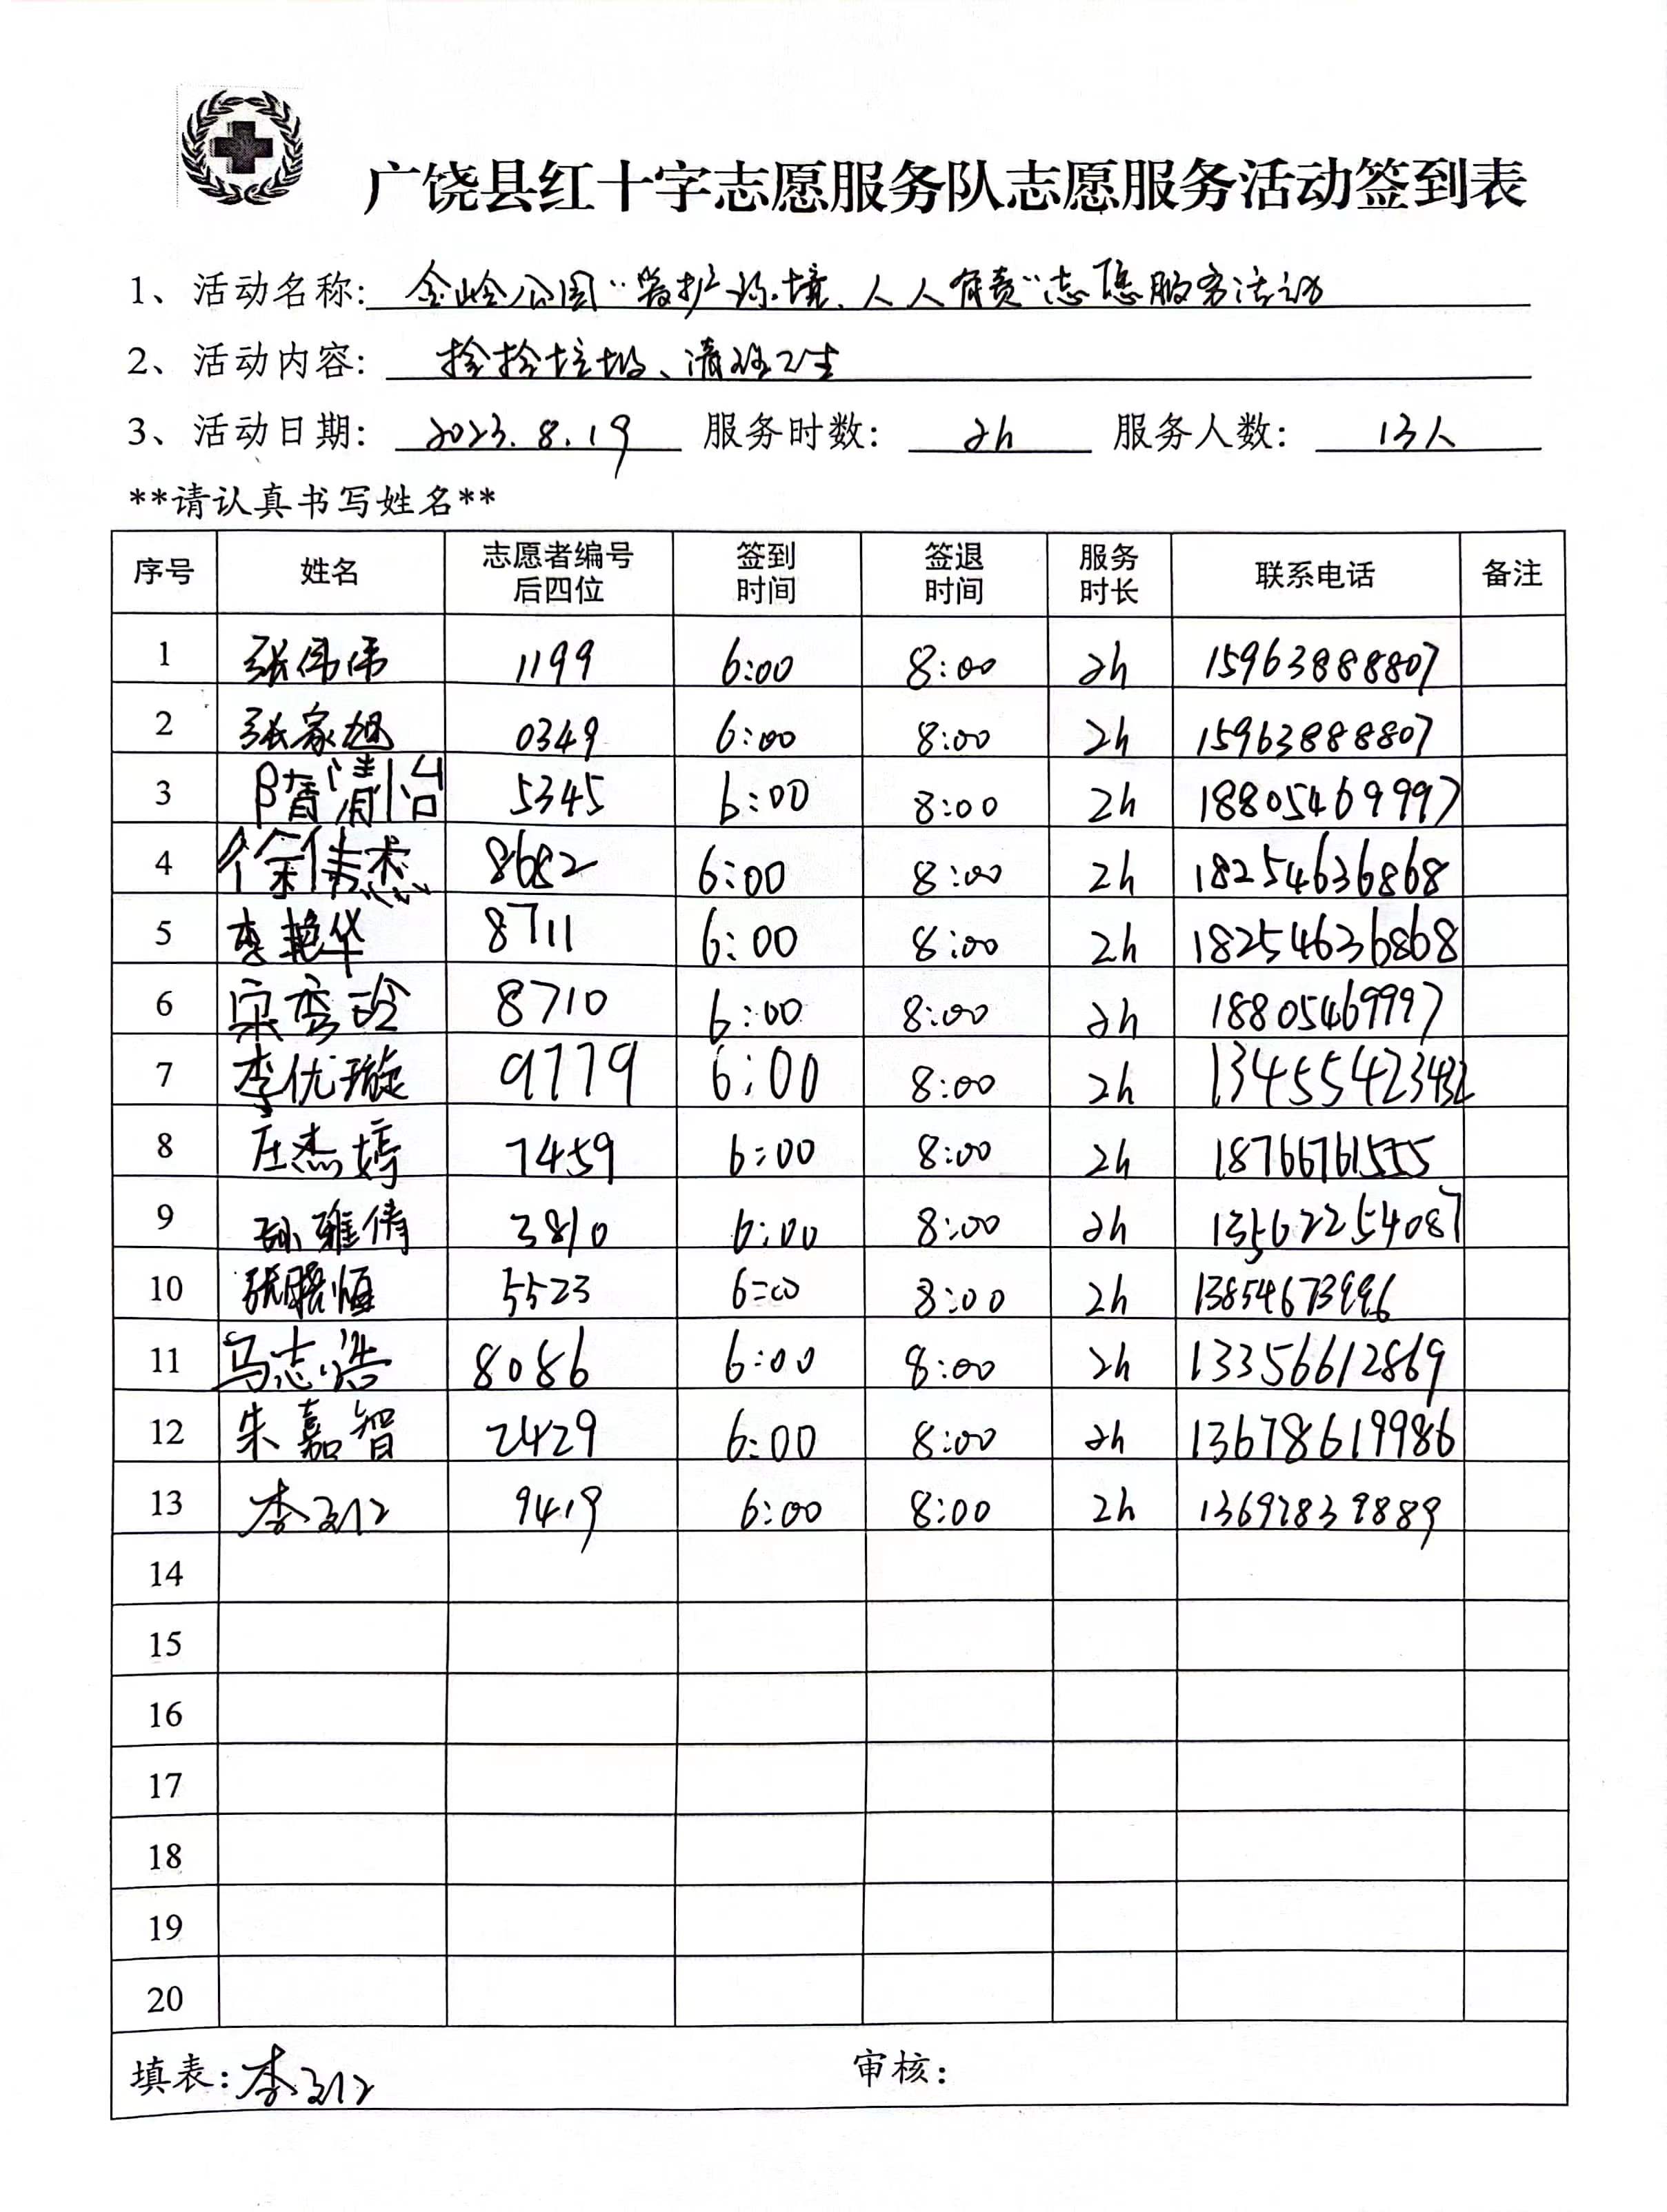 广饶县红十字志愿服务队志愿服务活动签到表
1、活动名称: 金岭公园“爱护环境、人人有责”志愿服务活动
2、活动内容: 捡拾垃圾、清理卫生
3、活动日期: 2023.8.19 服务时数: 2h 服务人数: 13人
**请认真书写姓名**
序号 姓名 志愿者编号后四位 签到时间 签退时间 服务时长 联系电话 备注
1 张伟伟 1199 6:00 8:00 2h 15963888807
2 张家旭 0349 6:00 8:00 2h 15963888807
3 隋清怡 5345 6:00 8:00 2h 18805469997
4 徐伟杰 8682 6:00 8:00 2h 18254636868
5 李艳华 8711 6:00 8:00 2h 18254636868
6 宋秀玲 8710 6:00 8:00 2h 18805469997
7 李优璇 9779 6:00 8:00 2h 13455423432
8 庄杰婷 7459 6:00 8:00 2h 18766761555
9 孙雅倩 3810 6:00 8:00 2h 13562254087
10 5523 6:00 8:00 2h
11 马志浩 8086 6:00 8:00 2h 13356612869
12 朱嘉智 2429 6:00 8:00 2h 13678619986
13 李 9419 6:00 8:00 2h
14
15
16
17
18
19
20
填表: 李 审核: